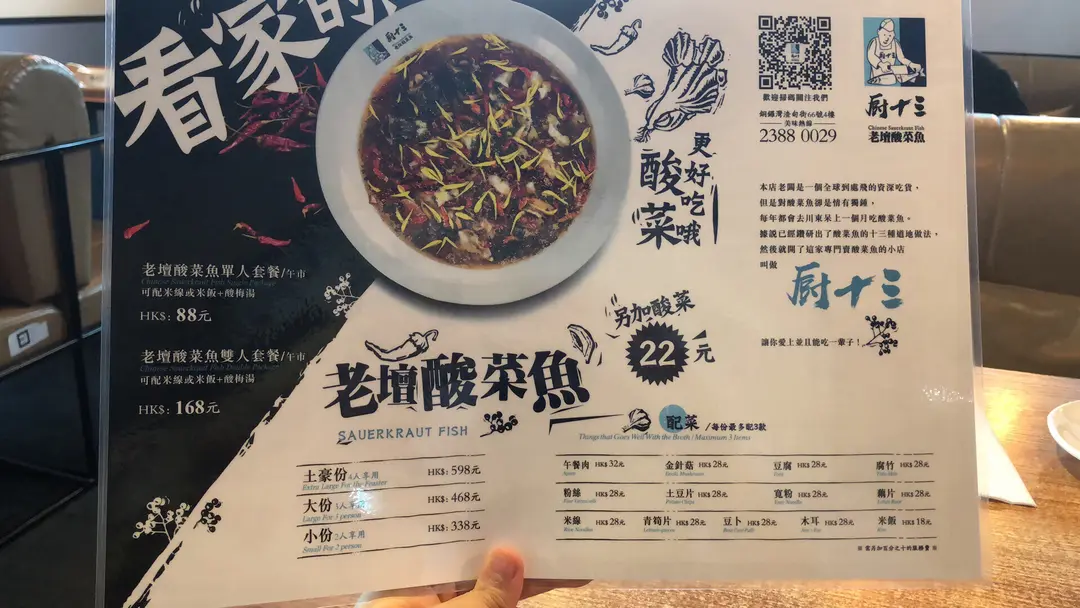 看家的
厨十三
更好吃哦
酸菜
歡迎掃碼關注我們
銅鑼灣渣甸街66號4樓
美味熱線
2388 0029
厨十三
Chinese Sauerkraut Fish
老壇酸菜魚
本店老闆是一個全球到處飛的資深吃貨，
但是對酸菜魚卻是情有獨鍾，
每年都會去川東呆上一個月吃酸菜魚。
據說已經鑽研出了酸菜魚的十三種道地做法，
然後就開了這家專門賣酸菜魚的小店
叫做
厨十三
讓你愛上並且能吃一輩子！
老壇酸菜魚單人套餐/午市
Chinese Sauerkraut Fish Single Package
可配米線或米飯+酸梅湯
HK$: 88元
老壇酸菜魚雙人套餐/午市
Chinese Sauerkraut Fish Double Package
可配米線或米飯+酸梅湯
HK$: 168元
另加酸菜
22元
老壇酸菜魚
SAUERKRAUT FISH
土豪份 4人享用 HK$: 598元
Extra Large For the Feaster
大份 3人享用 HK$: 468元
Large For 3 person
小份 2人享用 HK$: 338元
Small For 2 person
配菜 /每份最多配3款
Things that Goes Well With the Broth | Maximum 3 Items
午餐肉 HK$ 32元 金針菇 HK$ 28元 豆腐 HK$ 28元 腐竹 HK$ 28元
粉絲 HK$ 28元 土豆片 HK$ 28元 寬粉 HK$ 28元 藕片 HK$ 28元
米線 HK$ 28元 青筍片 HK$ 28元 豆卜 HK$ 28元 木耳 HK$ 28元 米飯 HK$ 18元
※ 需另加百分之十的服務費 ※